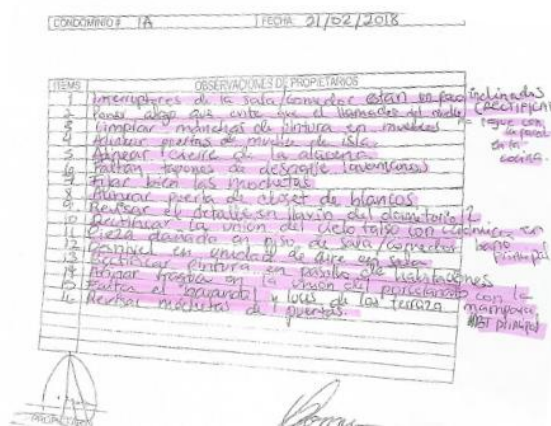 CONDOMINIO # 1A FECHA 21/02/2018
ITEMS OBSERVACIONES DE PROPIETARIOS
1 Interruptores de la sala/comedor están un poco inclinados (RECTIFICAR)
2 Poner algo que evite que el del mueble no pegue con la pared en la cocina
3 Limpiar manchas de pintura en muebles
4 Alinear puertas de mueble de isla
5 Alinear cierre de la alacena
6 Faltan tapones de desagüe lavamanos
7 Fijar bien las mochetas
8 Alinear puerta de closet de blancos
9 Revisar el detalle en llavín del dormitorio 2
10 Rectificar la unión del cielo falso con en baño principal
11 Pieza dañada en piso de sala/comedor
12 Desnivel en unidad de aire en sala
13 Rectificar pintura en pasillo de habitaciones
14 Afinar fragua en la unión del porcelanato con la
15 Faltan el barandal y luces de la terraza
16 Revisar mochetas de puertas.
PROPIETARIO